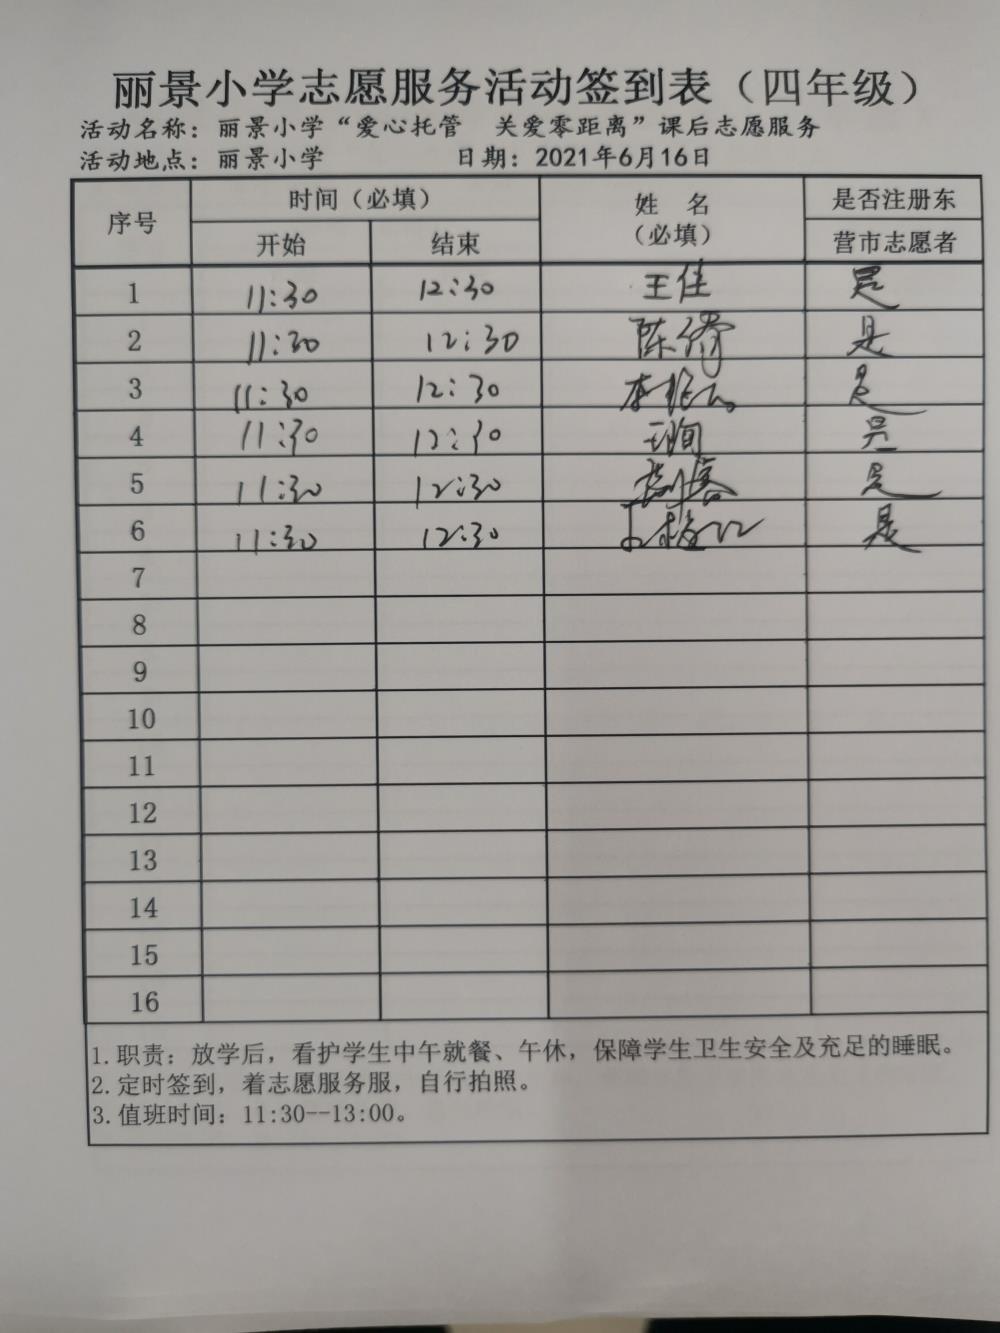 丽景小学志愿服务活动签到表（四年级）
活动名称：丽景小学“爱心托管　关爱零距离”课后志愿服务
活动地点：丽景小学　　　　日期：2021年6月16日
序号 时间（必填） 姓 名（必填） 是否注册东营市志愿者
开始 结束
1 11:30 12:30 王佳 是
2 11:30 12:30 陈 是
3 11:30 12:30 李 是
4 11:30 12:30 是
5 11:30 12:30 是
6 11:30 12:30 是
7
8
9
10
11
12
13
14
15
16
1.职责：放学后，看护学生中午就餐、午休，保障学生卫生安全及充足的睡眠。
2.定时签到，着志愿服务服，自行拍照。
3.值班时间：11:30--13:00。